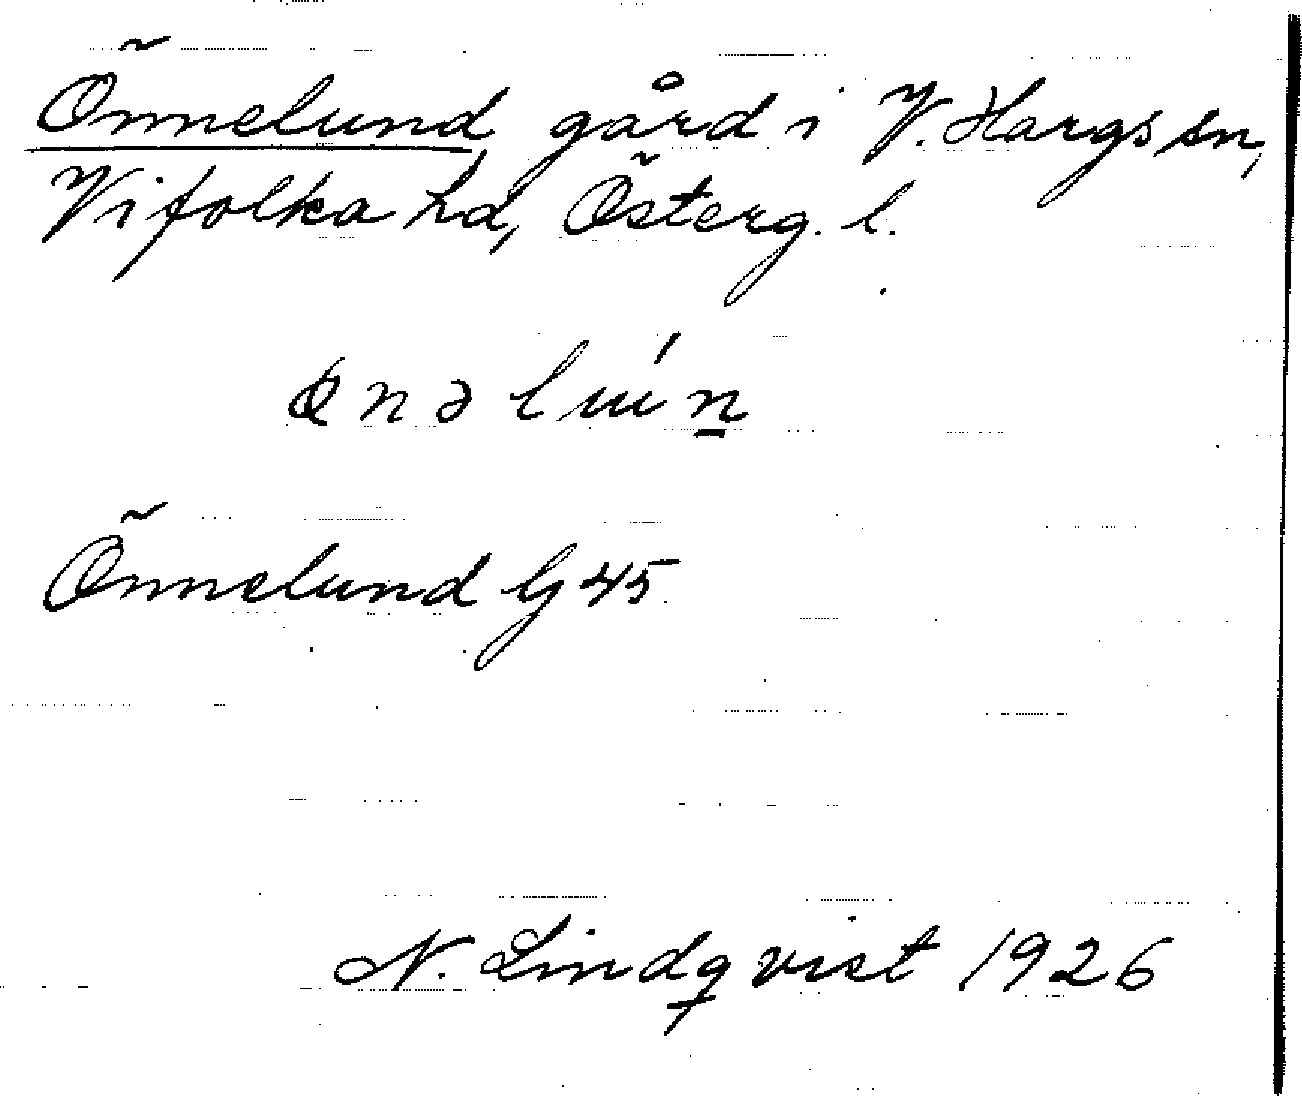 Önnelund, gård i V. Hargs sn,
Vifolka hd, Österg. l.
ønəlun̲
Önnelund G 45
N. Lindqvist 1926